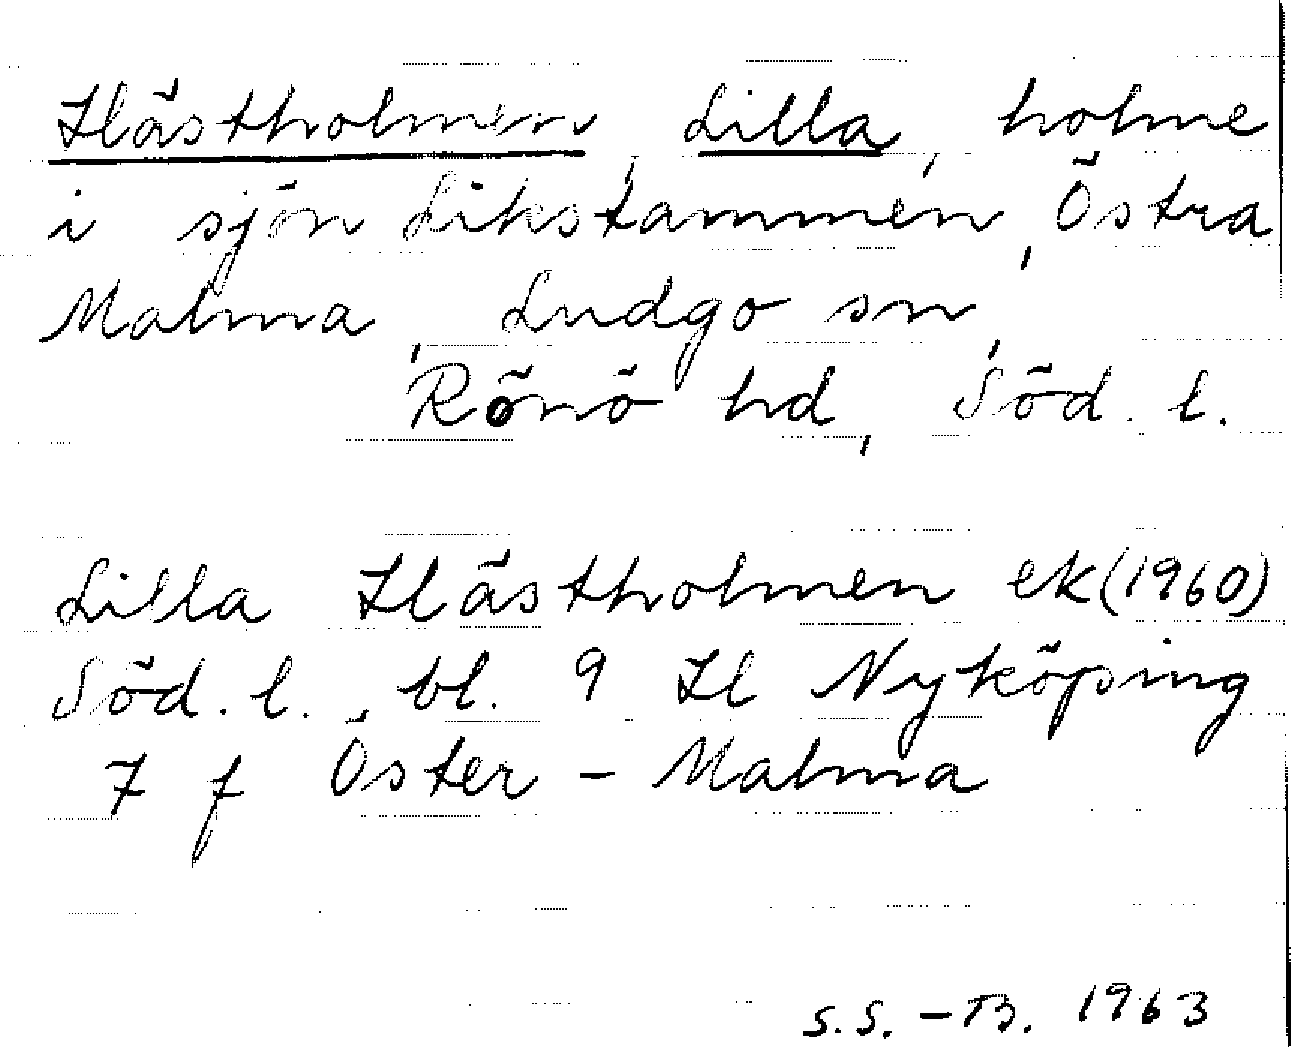 Hästholmen, Lilla, holme
i sjön Likstammen, Östra
Malma, Ludgo sn,
Rönö hd, Söd. l.
Lilla Hästholmen ek (1960)
Söd. l., bl. 9 H Nyköping
7 f Öster - Malma
S.S. - B. 1963